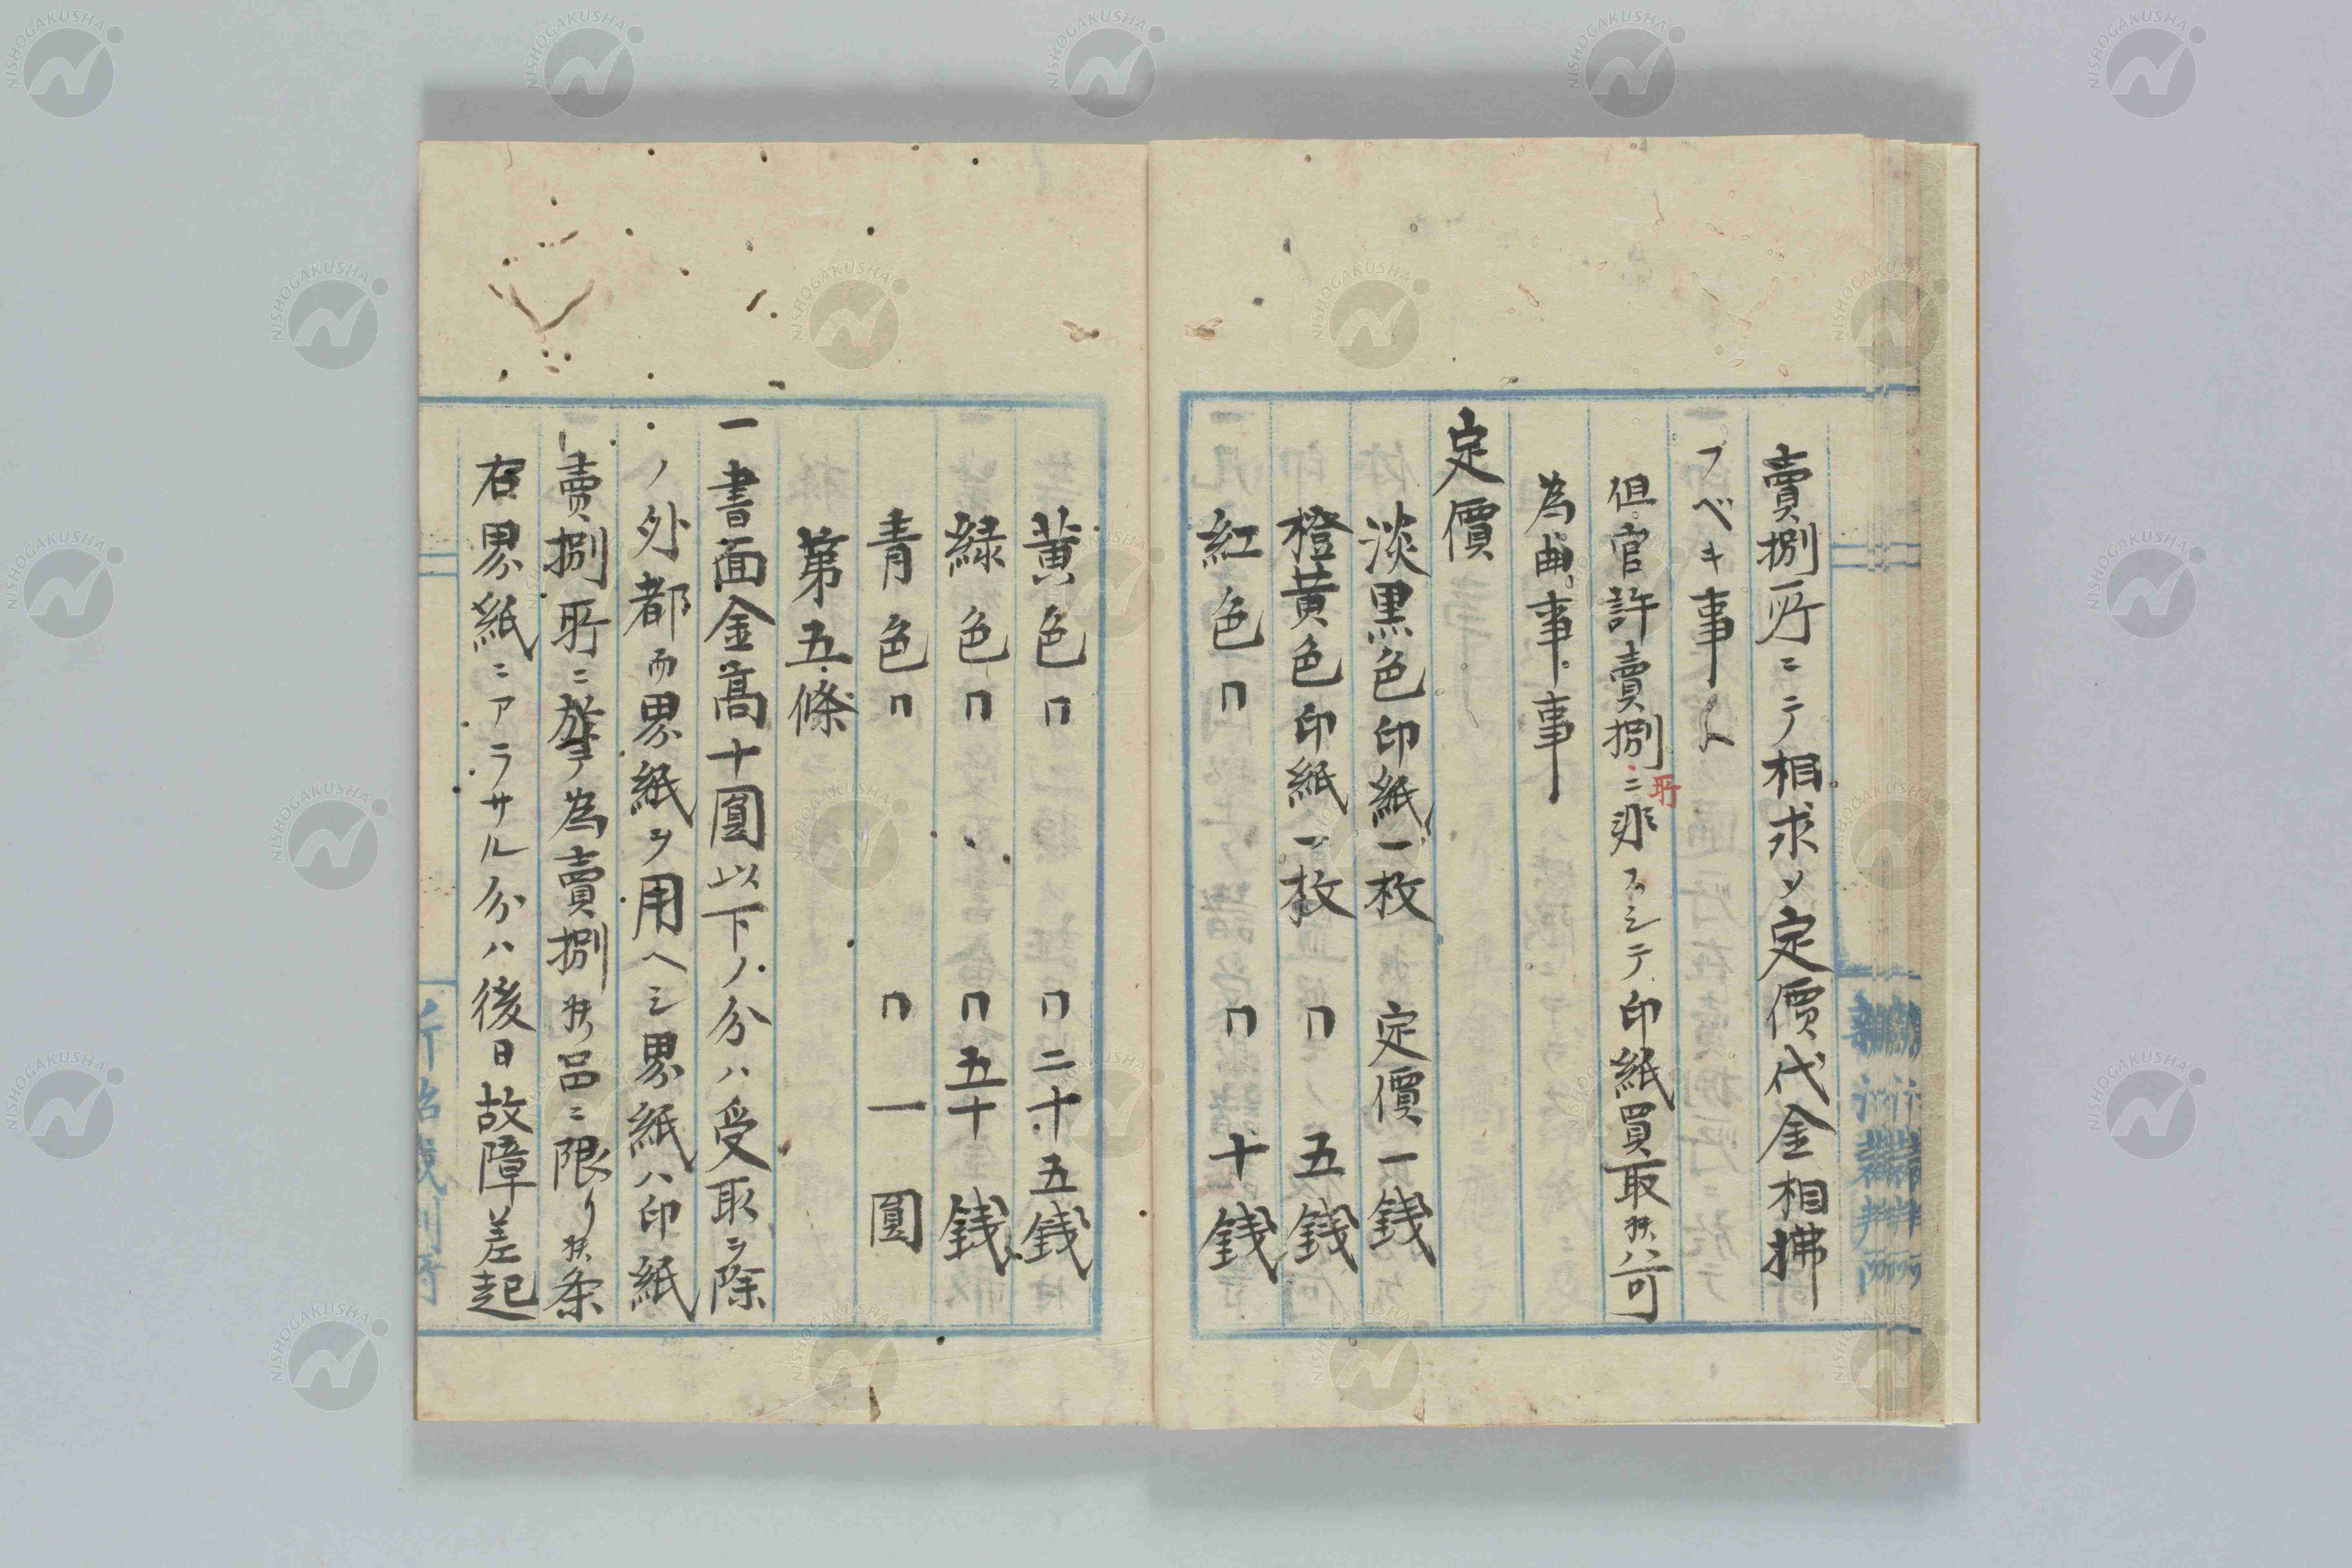 賣捌所ニテ相求メ定價代金相拂
フベキ事
但官許賣捌所ニ非スシテ印紙買取候ハ可
為曲事事
定價
淡黒色印紙一枚 定價一銭
橙黄色印紙一枚 〃 五銭
紅色〃 〃 十銭
黄色〃 〃二十五銭
緑色〃 〃五十銭
青色〃 〃一圓
第五條
一書面金高十圓以下ノ分ハ受取ヲ除
ノ外都而界紙ヲ用ヘシ界紙ハ印紙
賣捌所ニ於テ為賣捌候品ニ限リ候条
右界紙ニアラサル分ハ後日故障差起
NISHOGAKUSHA